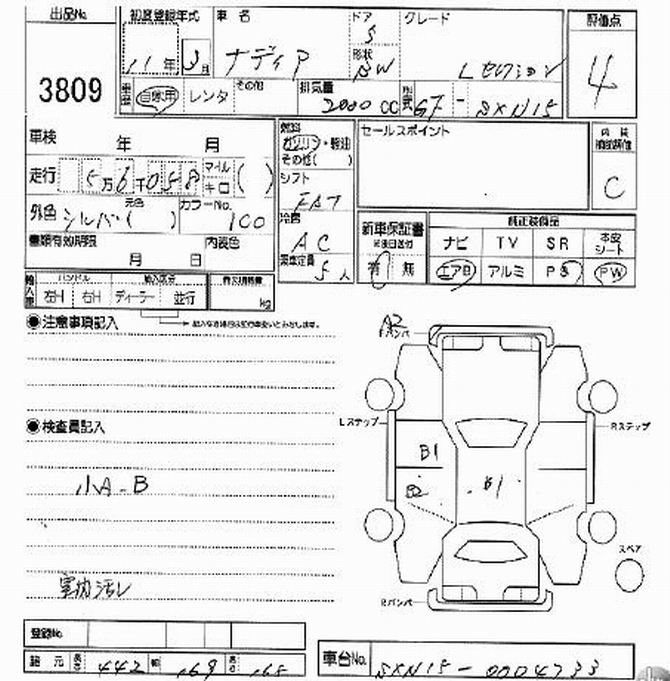 出品No.
3809
初度登録年式
11年 3月
車名
ナディア
ドア
5
形状
SW
グレード
Lセレクション
評価点
4
車歴
自家用 レンタ その他
排気量
2000 CC
型式
GF - SXN15
車検 年 月
走行 5万6千058 マイル キロ ( )
外色 シルバー 元色 ( )
カラーNo.
100
書類有効期限
月 日
内装色
燃料
ガソリン・軽油
その他( )
シフト
FAT
冷房
AC
乗車定員
5人
セールスポイント
内装
補助評価
C
新車保証書
※後日送付
有 無
純正装備品
ナビ TV SR 本皮シート
エアB アルミ PS PW
輸入車
ハンドル
右H 左H
輸入区分
ディーラー 並行
kg
記入なき場合は並行車扱いとみなします。
●注意事項記入
●検査員記入
小A-B
室内汚レ
A2
Fバンパ
Lステップ
Rステップ
B1
B2
B1
スペア
Rバンパ
登録No.
諸元 長さ 442 幅 169 高さ 165
車台No. SXN15-0004733